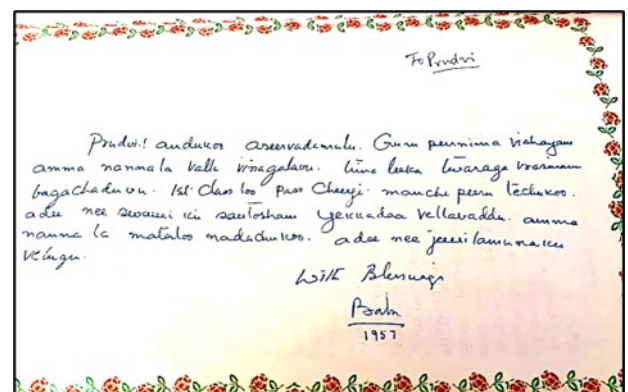 To Prudvi
Prudvi! andukos aseervadamulu. Guru purnima vishayam
amma nannala valla vinagalavu. bagachaduvu. 1st Class loo Pass Cheyi. manche peru techukoo.
adee nee swami ku santosham yekkadaa vellavaddu. amma
nanna la matalos nadachukoo. adee nee jeevitamunaku
velugu.
With Blessings
Baba
1957